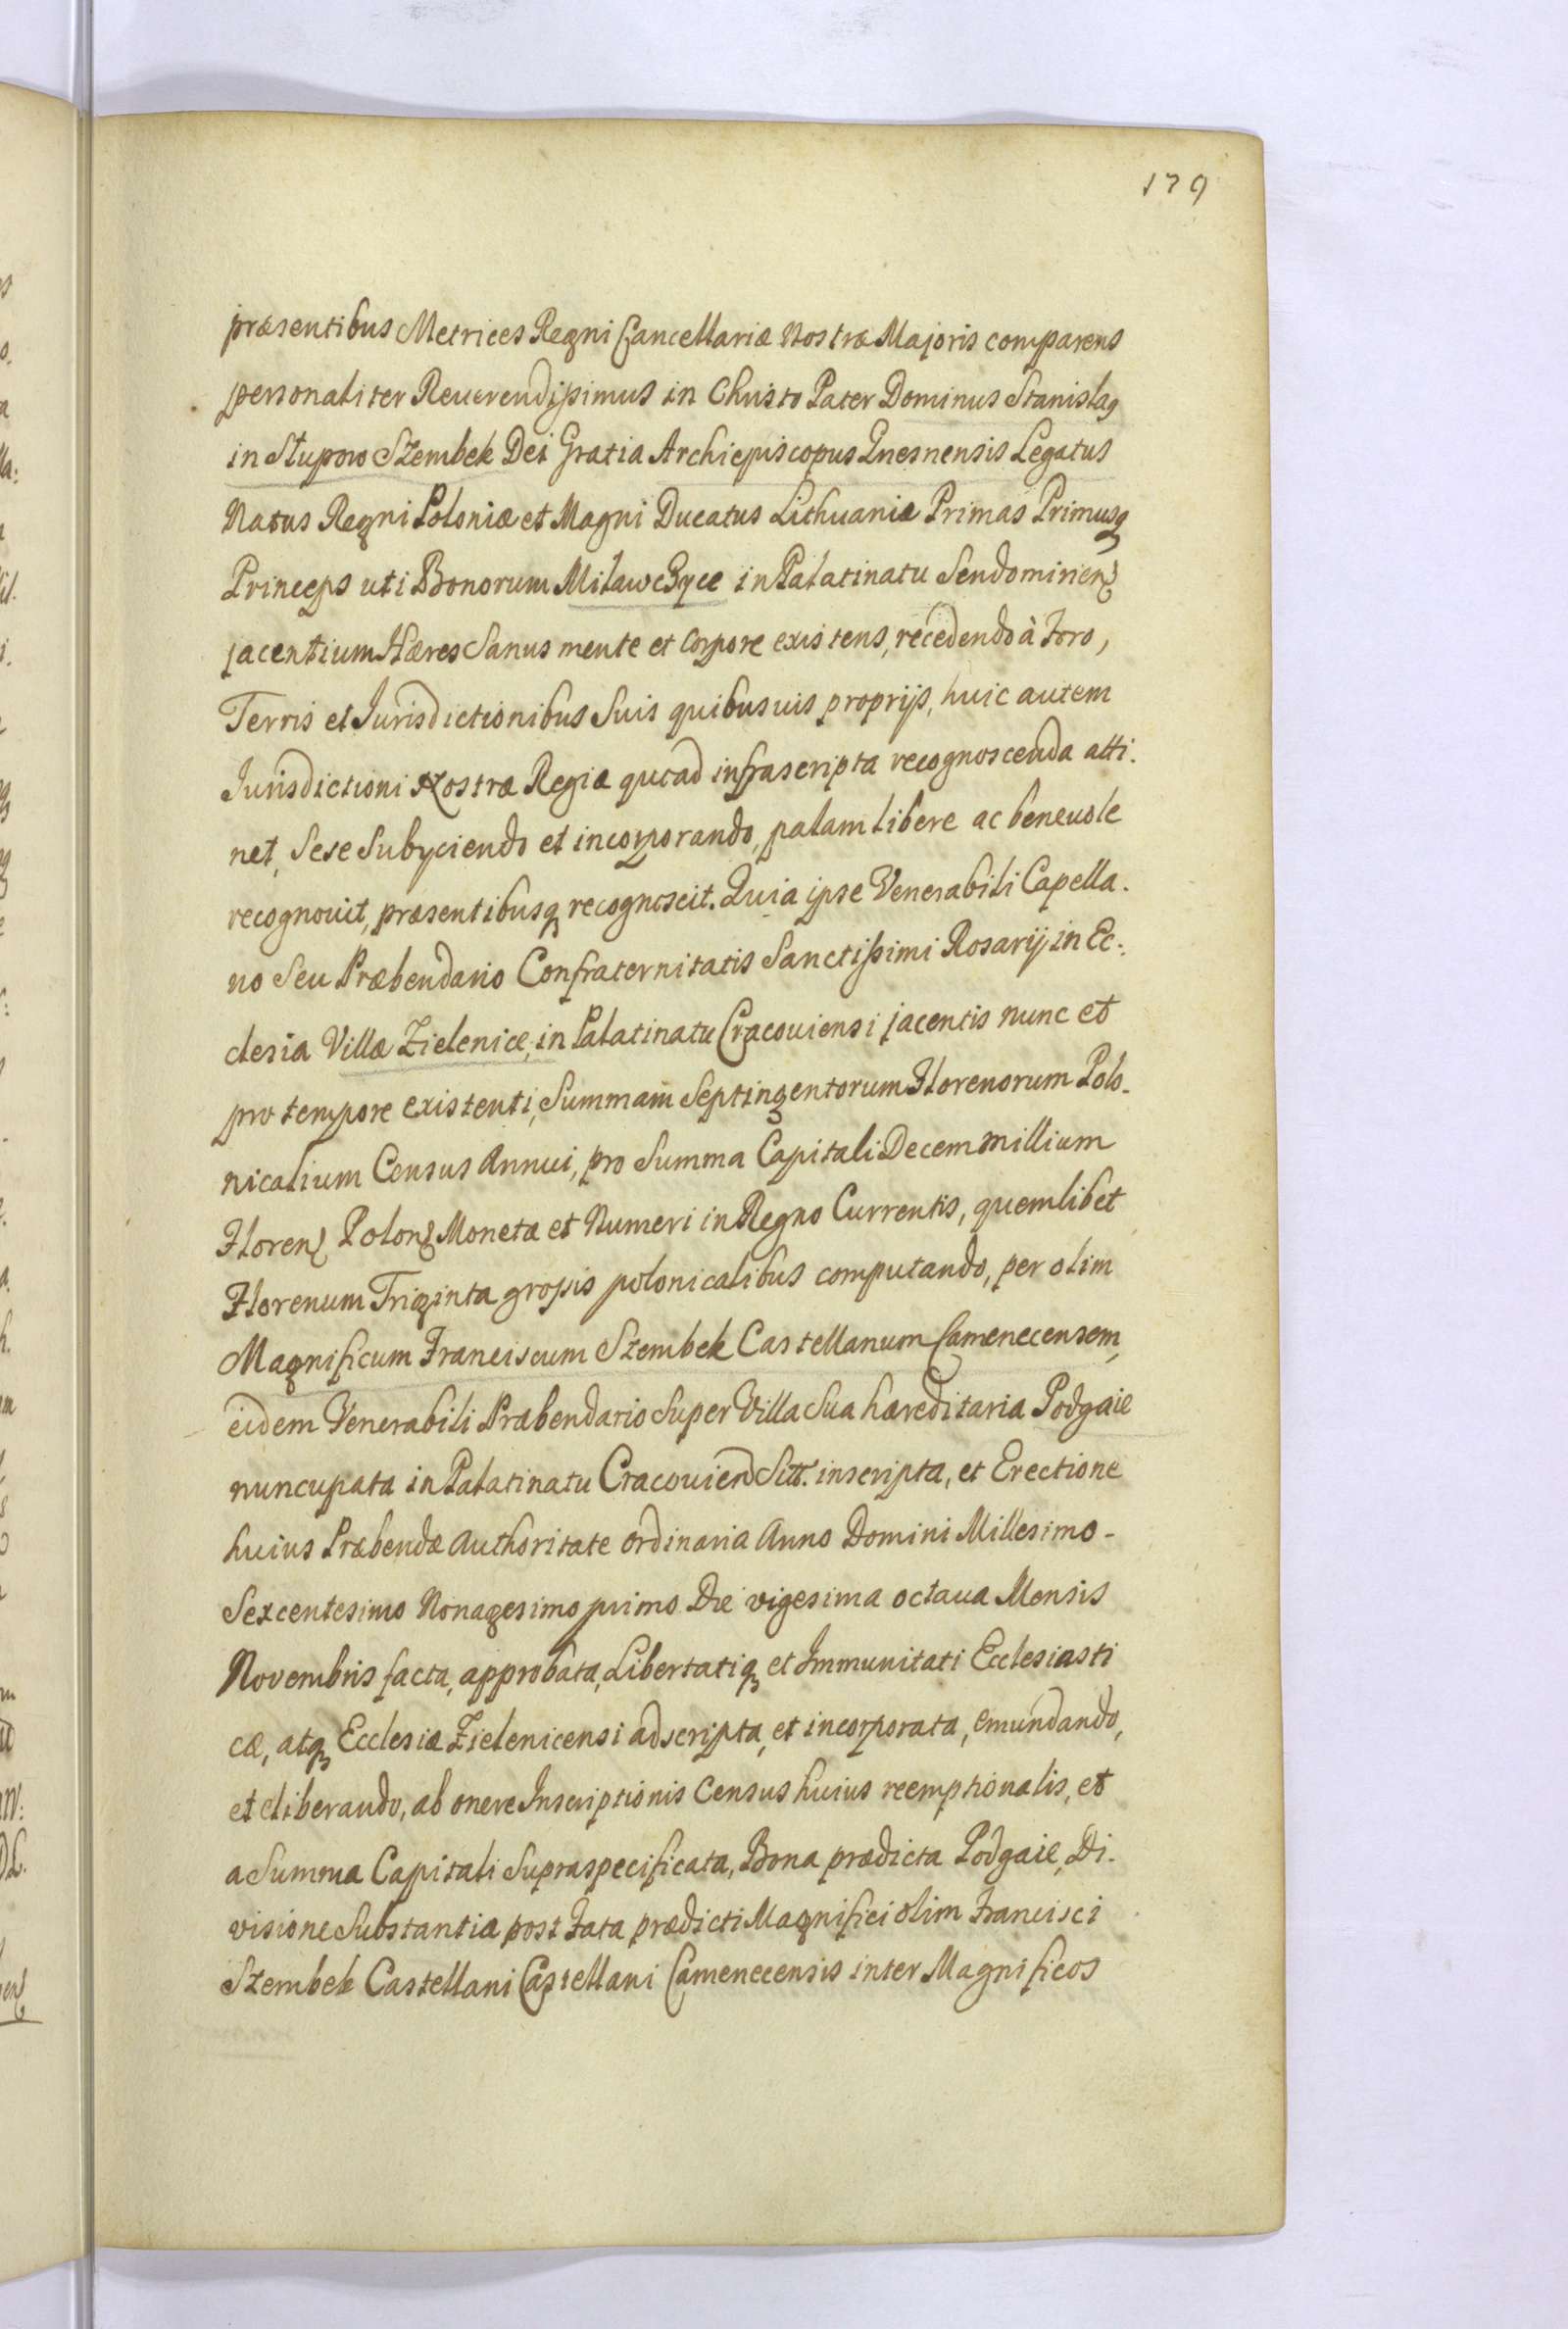 179
præsentibus Metrices Regni Cancellariæ Nostræ Majoris comparens
personaliter Reuerendissimus in Christo Pater Dominus Stanislaq
in Slupow Szembek Dei Gratia Archiepiscopus Gnesnensis Legatus
Natus Regni Poloniæ et Magni Ducatus Lithuaniæ Primas Primusq
Princeps uti Bonorum Milawczyce in Palatinatu Sendomirien
jacentium Hæres Sanus mente et Corpore existens, recedendo à Foro,
Terris et Jurisdictionibus Suis quibusuis proprijs, huic autem
Jurisdictioni Nostræ Regiæ quoad infrascripta recognoscenda atti.
net, Sese Subyciendo et incorporando, palam libere ac beneuole
recognouit, præsentibusq recognoscit. Quia ipse Venerabili Capella.
no Seu Præbendario Confraternitatis Sanctissimi Rosarij in Ec:
clesia Villæ Zielenice, in Palatinatu Cracouiensi jacentis nunc et
pro tempore existenti, Summam Septingentorum Florenorum Polo-
nicalium Census Annui, pro Summa Capitali Decem millium
Floren Polon Monetæ et Numeri in Regno Currentis, quemlibet
Florenum Triginta grossis polonicalibus computando, per olim
Magnificum Franciscum Szembek Castellanum Camenecensem,
eidem Venerabili Præbendario Super Villa Sua hæreditaria Podgaie
nuncupata in Palatinatu Cracouien Sitt. inscripta, et Erectione
huius Præbendæ Authoritate ordinaria Anno Domini Millesimo-
Sexcentesimo Nonagesimo primo Die vigesima octaua Mensis
Novembris facta, approbata, Libertatiq et Immunitati Ecclesiasti
cæ, atq Ecclesiæ Zielenicensi adscripta, et incorporata, emundando,
et eliberando, ab onere Inscriptionis Census huius reemptionalis, et
a Summa Capitali Supraspecificata, Bona prædicta Podgaie, Di.
visione Substantia post Fata prædicti Magnifici olim Francisci
Szembek Castellani Castellani Camenecensis inter Magnificos